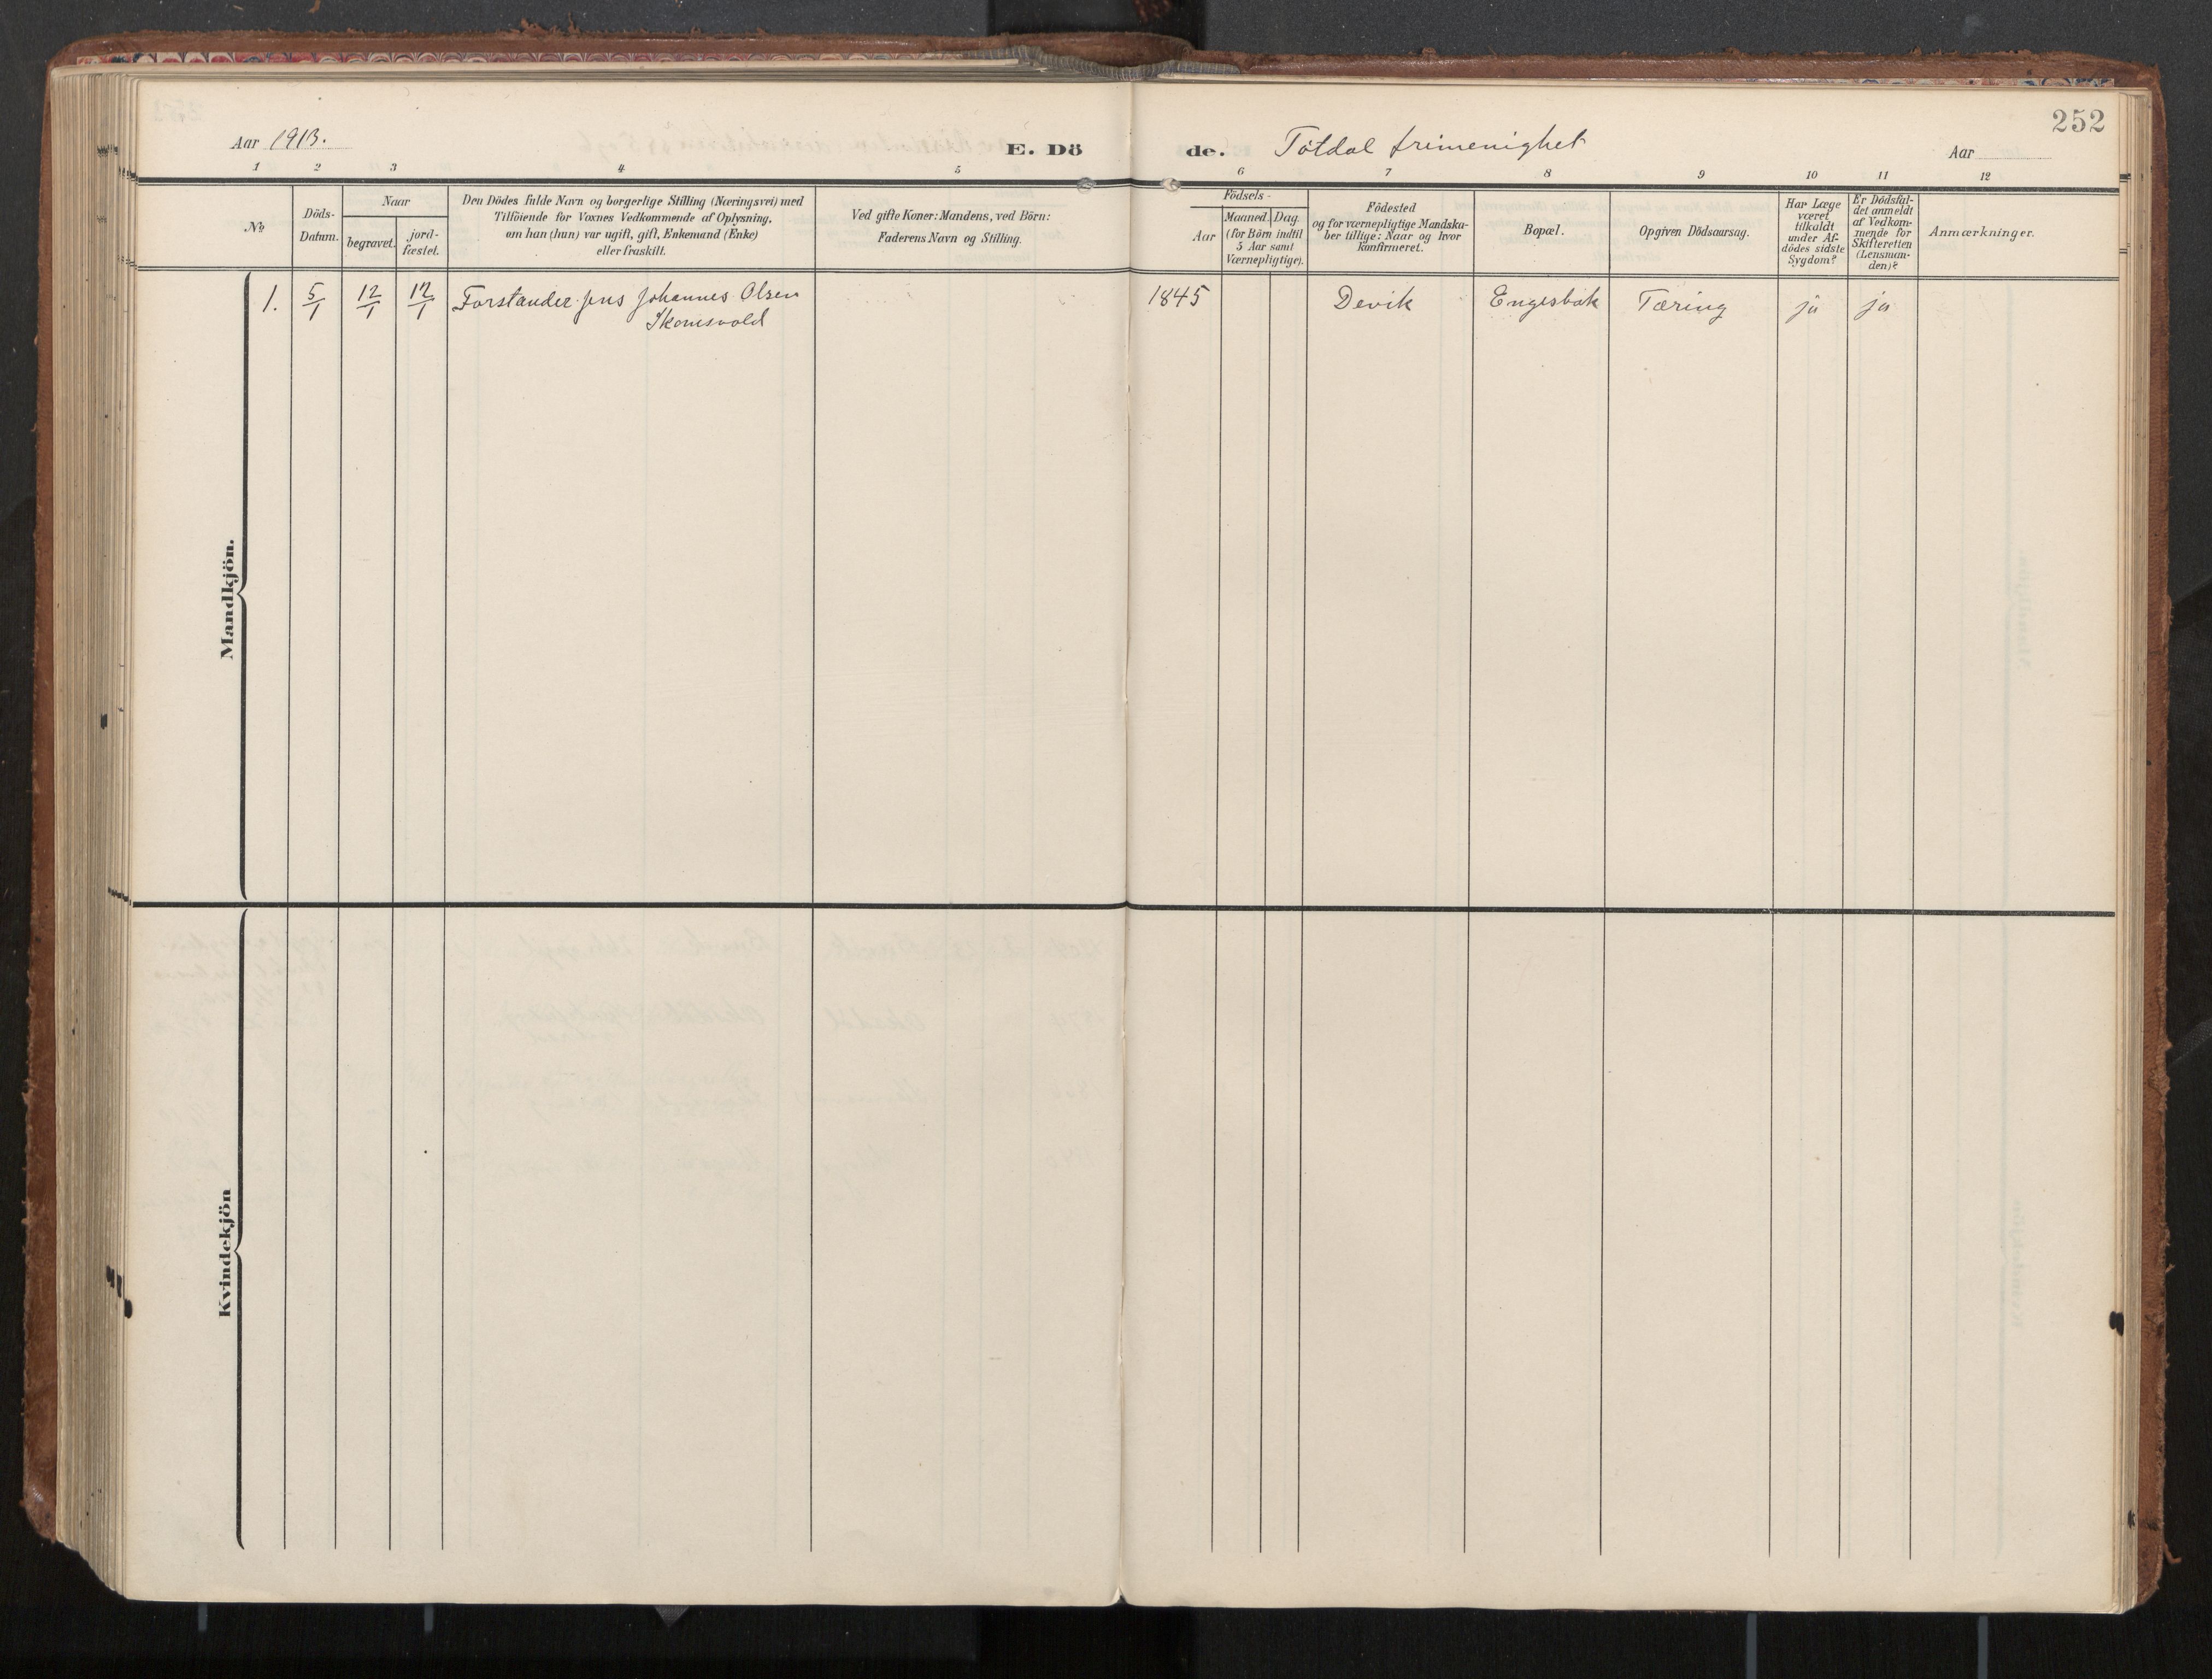 252
Aar 1913.
E. Dö
de. Totdal frimenighet
Aar
1 2 3 4 5 6 7 8 9 10 11 12
No
Döds-
Datum.
Naar
begravet.
jord-
fæstet.
Den Dödes fulde Navn og borgerlige Stilling (Næringsvei) med
Tilföiende for Voxnes Vedkommende af Oplysning,
om han (hun) var ugift, gift, Enkemand (Enke)
eller fraskilt.
Ved gifte Koner: Mandens, ved Börn:
Faderens Navn og Stilling.
Födsels-
Aar
Maaned. Dag.
(for Börn indtil
5 Aar samt
Værnepligtige).
Födested
og for værnepligtige Mandska-
ber tillige: Naar og hvor
konfirmeret.
Bopæl.
Opgiven Dödsaarsag.
Har Læge
været
tilkaldt
under Af-
dödes sidste
Sygdom?
Er Dödsfal-
det anmeldt
af Vedkom-
mende for
Skifteretten
(Lensman-
den)?
Anmærkninger.
1. 5/1 12/1 12/1 Forstander Jens Johannes Olsen 1845 Devik Engesbak Tæring ja ja
Skomsvold
Mandkjön.
Kvindekjön